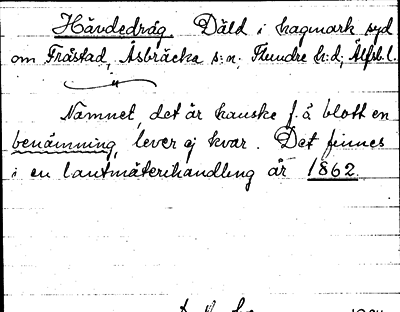 Hävdedråg. Däld i hagmark syd
om Fråstad, Åsbräcka s:n. Flundre h:d, Älfsb.l.
Namnet, det är kanske f. ö blott en
benämning, lever ej kvar. Det finnes
i en lantmäterihandling år 1862.